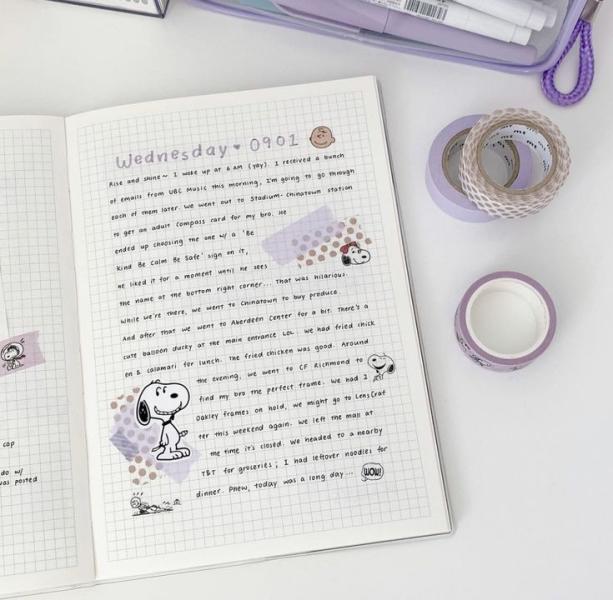 Wednesday ♥ 0901
Rise and shine~ I woke up at 6 AM (yay). I received a bunch
of emails from UBC Music this morning, I'm going to go through
each of them later. We went out to Stadium-Chinatown station
to get an adult Compass card for my bro. He
ended up choosing the one w/ a 'Be
Kind Be Calm Be Safe' sign on it,
he liked it for a moment until he sees
the name at the bottom right corner... That was hilarious.
While we're there, we went to Chinatown to buy produce.
And after that we went to Aberdeen Center for a bit. There's a
cute balloon ducky at the main entrance LOL. We had fried chick
en & calamari for lunch. The fried chicken was good. Around
the evening, we went to CF Richmond to
find my bro the perfect frame. We had 2
Oakley frames on hold, we might go to LensCraf
ter this weekend again. We left the mall at
the time it's closed. We headed to a nearby
T&T for groceries; I had leftover noodles for
dinner. Phew, today was a long day...
WOW!
cap
do w/
was posted
mt
mt